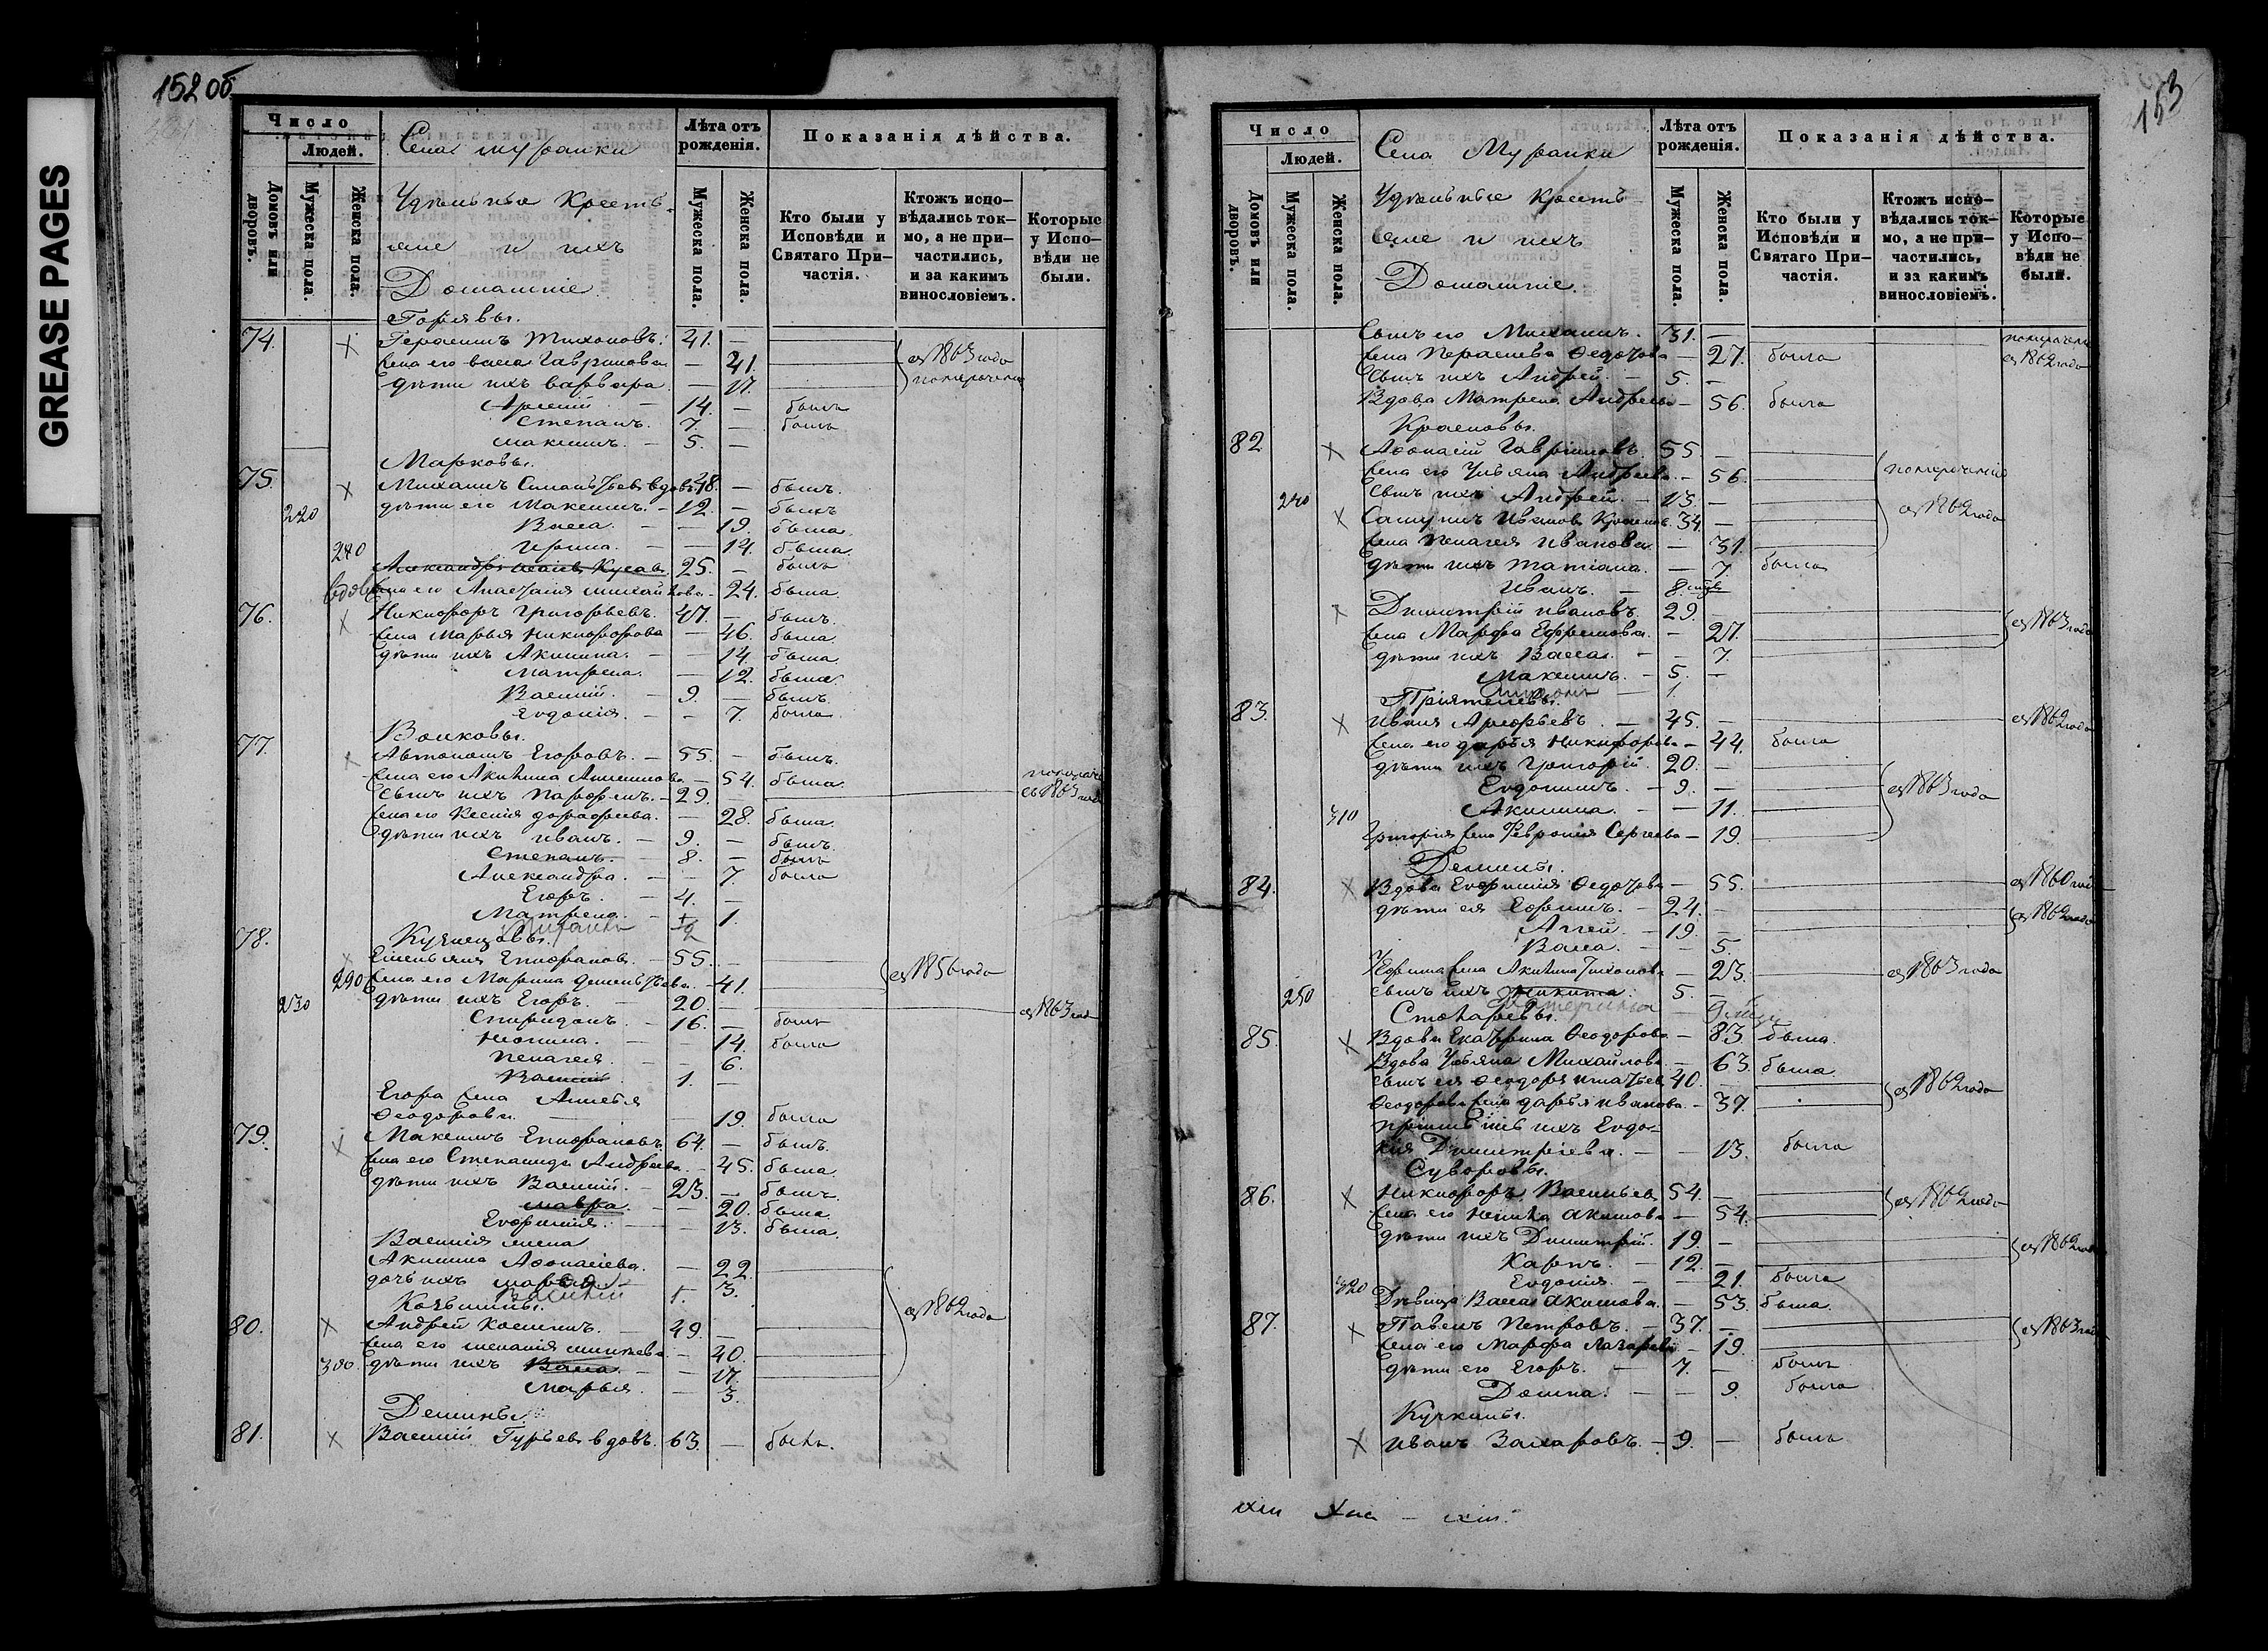 GREASE PAGES
152 об
Число
Людей.
Домовъ или дворовъ.
Мужеска пола.
Женска пола.
Села Муранки
Удѣльные Кресть-
яне и ихъ
Домашніе
Лѣта отъ рожденія.
Мужеска пола.
Женска пола.
Показанія дѣйства.
Кто были у Исповѣди и Святаго При-частія.
Ктожъ испо-вѣдались ток-мо, а не при-частились, и за какимъ винословіемъ.
Которые у Испо-вѣди не были.
74. Герасимъ Тихоновъ. 41. —
жена его Васса Гаврилова — 41. съ 1863 года
дѣти ихъ Варвара — 17.
Арсеній — 14. — былъ
Степанъ. 7. — былъ
Максимъ. — 5. —
Марковы.
75. Михаилъ вдовъ 48. — былъ.
220 дѣти его Максимъ. — 12. — былъ
Васса. — — 19. была.
280 Ирина. — — 14. была.
Александръ 25. — былъ
жена его Анастасія Михайлова — 24. была
76. Никифоръ Григорьевъ. 47. — былъ.
жена Марья Никифорова — 46. была
дѣти ихъ Акилина. — — 14. была
Матрена. — 12. была.
Василій. — 9. — былъ
Евдокія. — — 7. была.
Волковы.
77. Автономъ Егоровъ. — 55. — былъ.
жена его Акилина — 54. была.
сынъ ихъ Парфенъ. — 29. — съ 1863 года
жена его Ксенія Дорофеева. — 28. была.
дѣти ихъ Иванъ. — 9. — былъ.
Степанъ. — 8. — былъ
Александра. — — 7. была
Егоръ. — 4. —
Матрена. — 1.
78. Кузнецовы.
Емельянъ Епифановъ — 55. — съ 1856 года
290 жена его Марина — 41.
230 дѣти ихъ Егоръ. — 20. — съ 1863 года
Спиридонъ. — 16. — былъ
Неонила. — — 14. была
Пелагея. — — 6.
Василій. 1. —
Егора жена
Феодорова. — — 19. была
79. Максимъ Епифановъ. 64. — былъ.
жена его Степанида Андреева. — 45. была.
дѣти ихъ Василій. — 23. — былъ.
Мавра. — — 20. была
Евфимія. — — 13. была.
Василія жена
Акилина Афонасіева. — 22
дочь ихъ Марья — 3.
Василій 1.
80. Андрей 49. — съ 1862 года
жена его — 40.
300 дѣти ихъ Васса. — — 17.
Марья. — 3.
Демины.
81. Василій Гурьевъ вдовъ. 63. — былъ.
153
Число
Людей.
Домовъ или дворовъ.
Мужеска пола.
Женска пола.
Села Муранки
Удѣльные Кресть-
яне и ихъ
Домашніе.
Лѣта отъ рожденія.
Мужеска пола.
Женска пола.
Показанія дѣйства.
Кто были у Исповѣди и Святаго При-частія.
Ктожъ испо-вѣдались ток-мо, а не при-частились, и за какимъ винословіемъ.
Которые у Испо-вѣди не были.
Сынъ его Михаилъ. 31. —
жена Параскева Федотова 27. была съ 1862 года
Сынъ ихъ Андрей. — 5. —
Вдова Матрена Андреева — 56. была
Красновы.
82 Афонасій Гавриловъ. 55 —
жена его Ульяна Андреева. — 56.
240 Сынъ ихъ Андрей. — 13. — съ 1862 года
Иванов 34 —
жена Пелагея Иванова. — 31.
дѣти ихъ Татіана. — 7. была
Иванъ. — 8.
Димитрій Ивановъ. 29. — съ 1863 года
жена Марфа Ефремова. — 27.
дѣти ихъ Васса. — 7.
Максимъ. — 5. —
1.
Пріятелевы.
83. Иванъ — 45. — съ 1862 года
жена его Дарья Никифорова — 44. была
дѣти ихъ Григорій. 20. —
Евдокимъ. — 9. — съ 1863 года
310 Акилина. — — 11.
Григорія жена Февронія Сергеева — 19.
Демины.
84. Вдова Евфимія Федотова — 55. съ 1860 года
дѣти ея Ефимъ. — 24. — съ 1862 года
Аггей. — 19. —
Васса. — — 5.
Ефима жена Акилина Тихонова — 23. съ 1863 года
250 сынъ ихъ Никита. 5. —
Столяревы.
85. Вдова Екатерина Феодорова — 83 была.
Вдова Ульяна Михайлова — 63. была
сынъ ея Феодоръ 40. — съ 1862 года
Феодора жена Дарья Иванова. — 37.
ихъ Евдо-
кія Димитріева. — — 13. была
Суворовы.
86. Никифоръ Васильевъ 54. — съ 1862 года
жена его Акимова — 54.
дѣти ихъ Димитрій. 19. — съ 1862 года
Карпъ. — 12. —
320 Евдокія. — — 21. была
Дѣвица Васса Акимова. — 53. была.
87. Павелъ Петровъ. — 37. — съ 1863 года
жена его Марфа Лазарева — 19.
дѣти его Егоръ. — 7. — былъ
Домна. — — 9. была
Кучкины.
Иванъ Захаровъ. — 9. — былъ